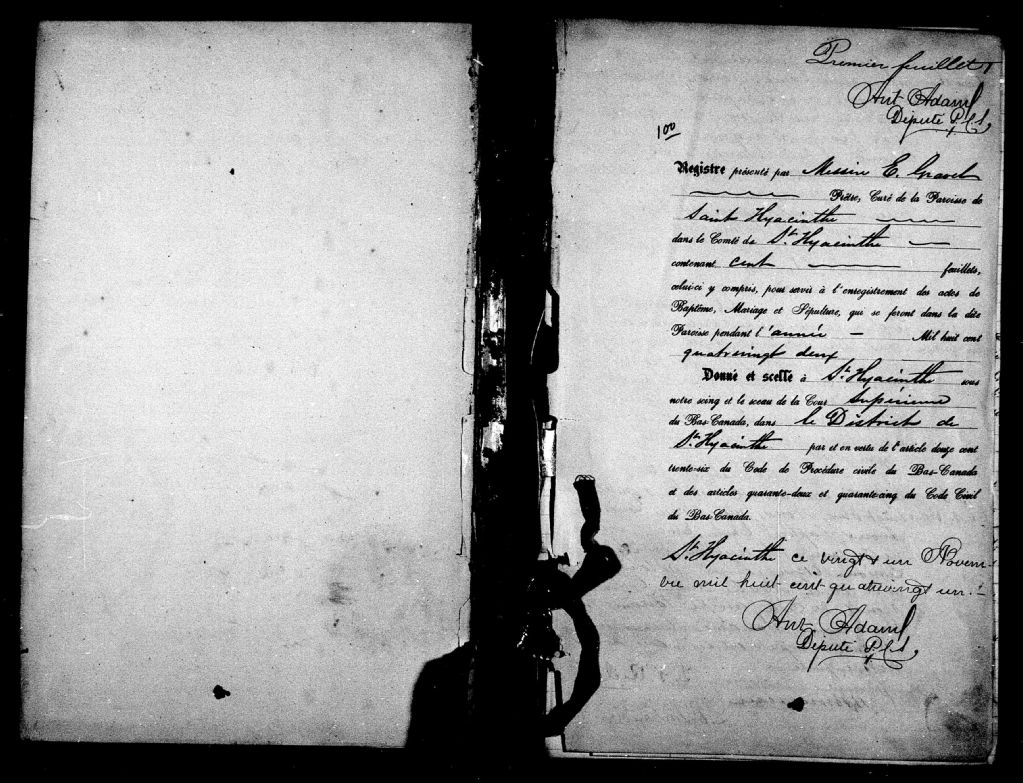 Premier feuillet
Ant Adam
Député P.C.S.
100
Registre présenté par Messire E. Gravel
Prêtre, Curé de la Paroisse de
Saint Hyacinthe
dans le Comté de St. Hyacinthe
contenant cent feuillets,
celui-ci y compris, pour servir à l'enregistrement des actes de
Baptême, Mariage et Sépulture, qui se feront dans la dite
Paroisse pendant l'année — Mil huit cent
quatrevingt deux
Donné et scellé à St. Hyacinthe sous
notre seing et le sceau de la Cour Supérieure
du Bas-Canada, dans le District de
St. Hyacinthe par et en vertu de l'article douze cent
trente-six du Code de Procédure civile du Bas-Canada
et des articles quarante-deux et quarante-cinq du Code Civil
du Bas-Canada.
St. Hyacinthe ce vingt un Novem-
bre mil huit cent quatrevingt un.
Ant Adam
Député P.C.S.